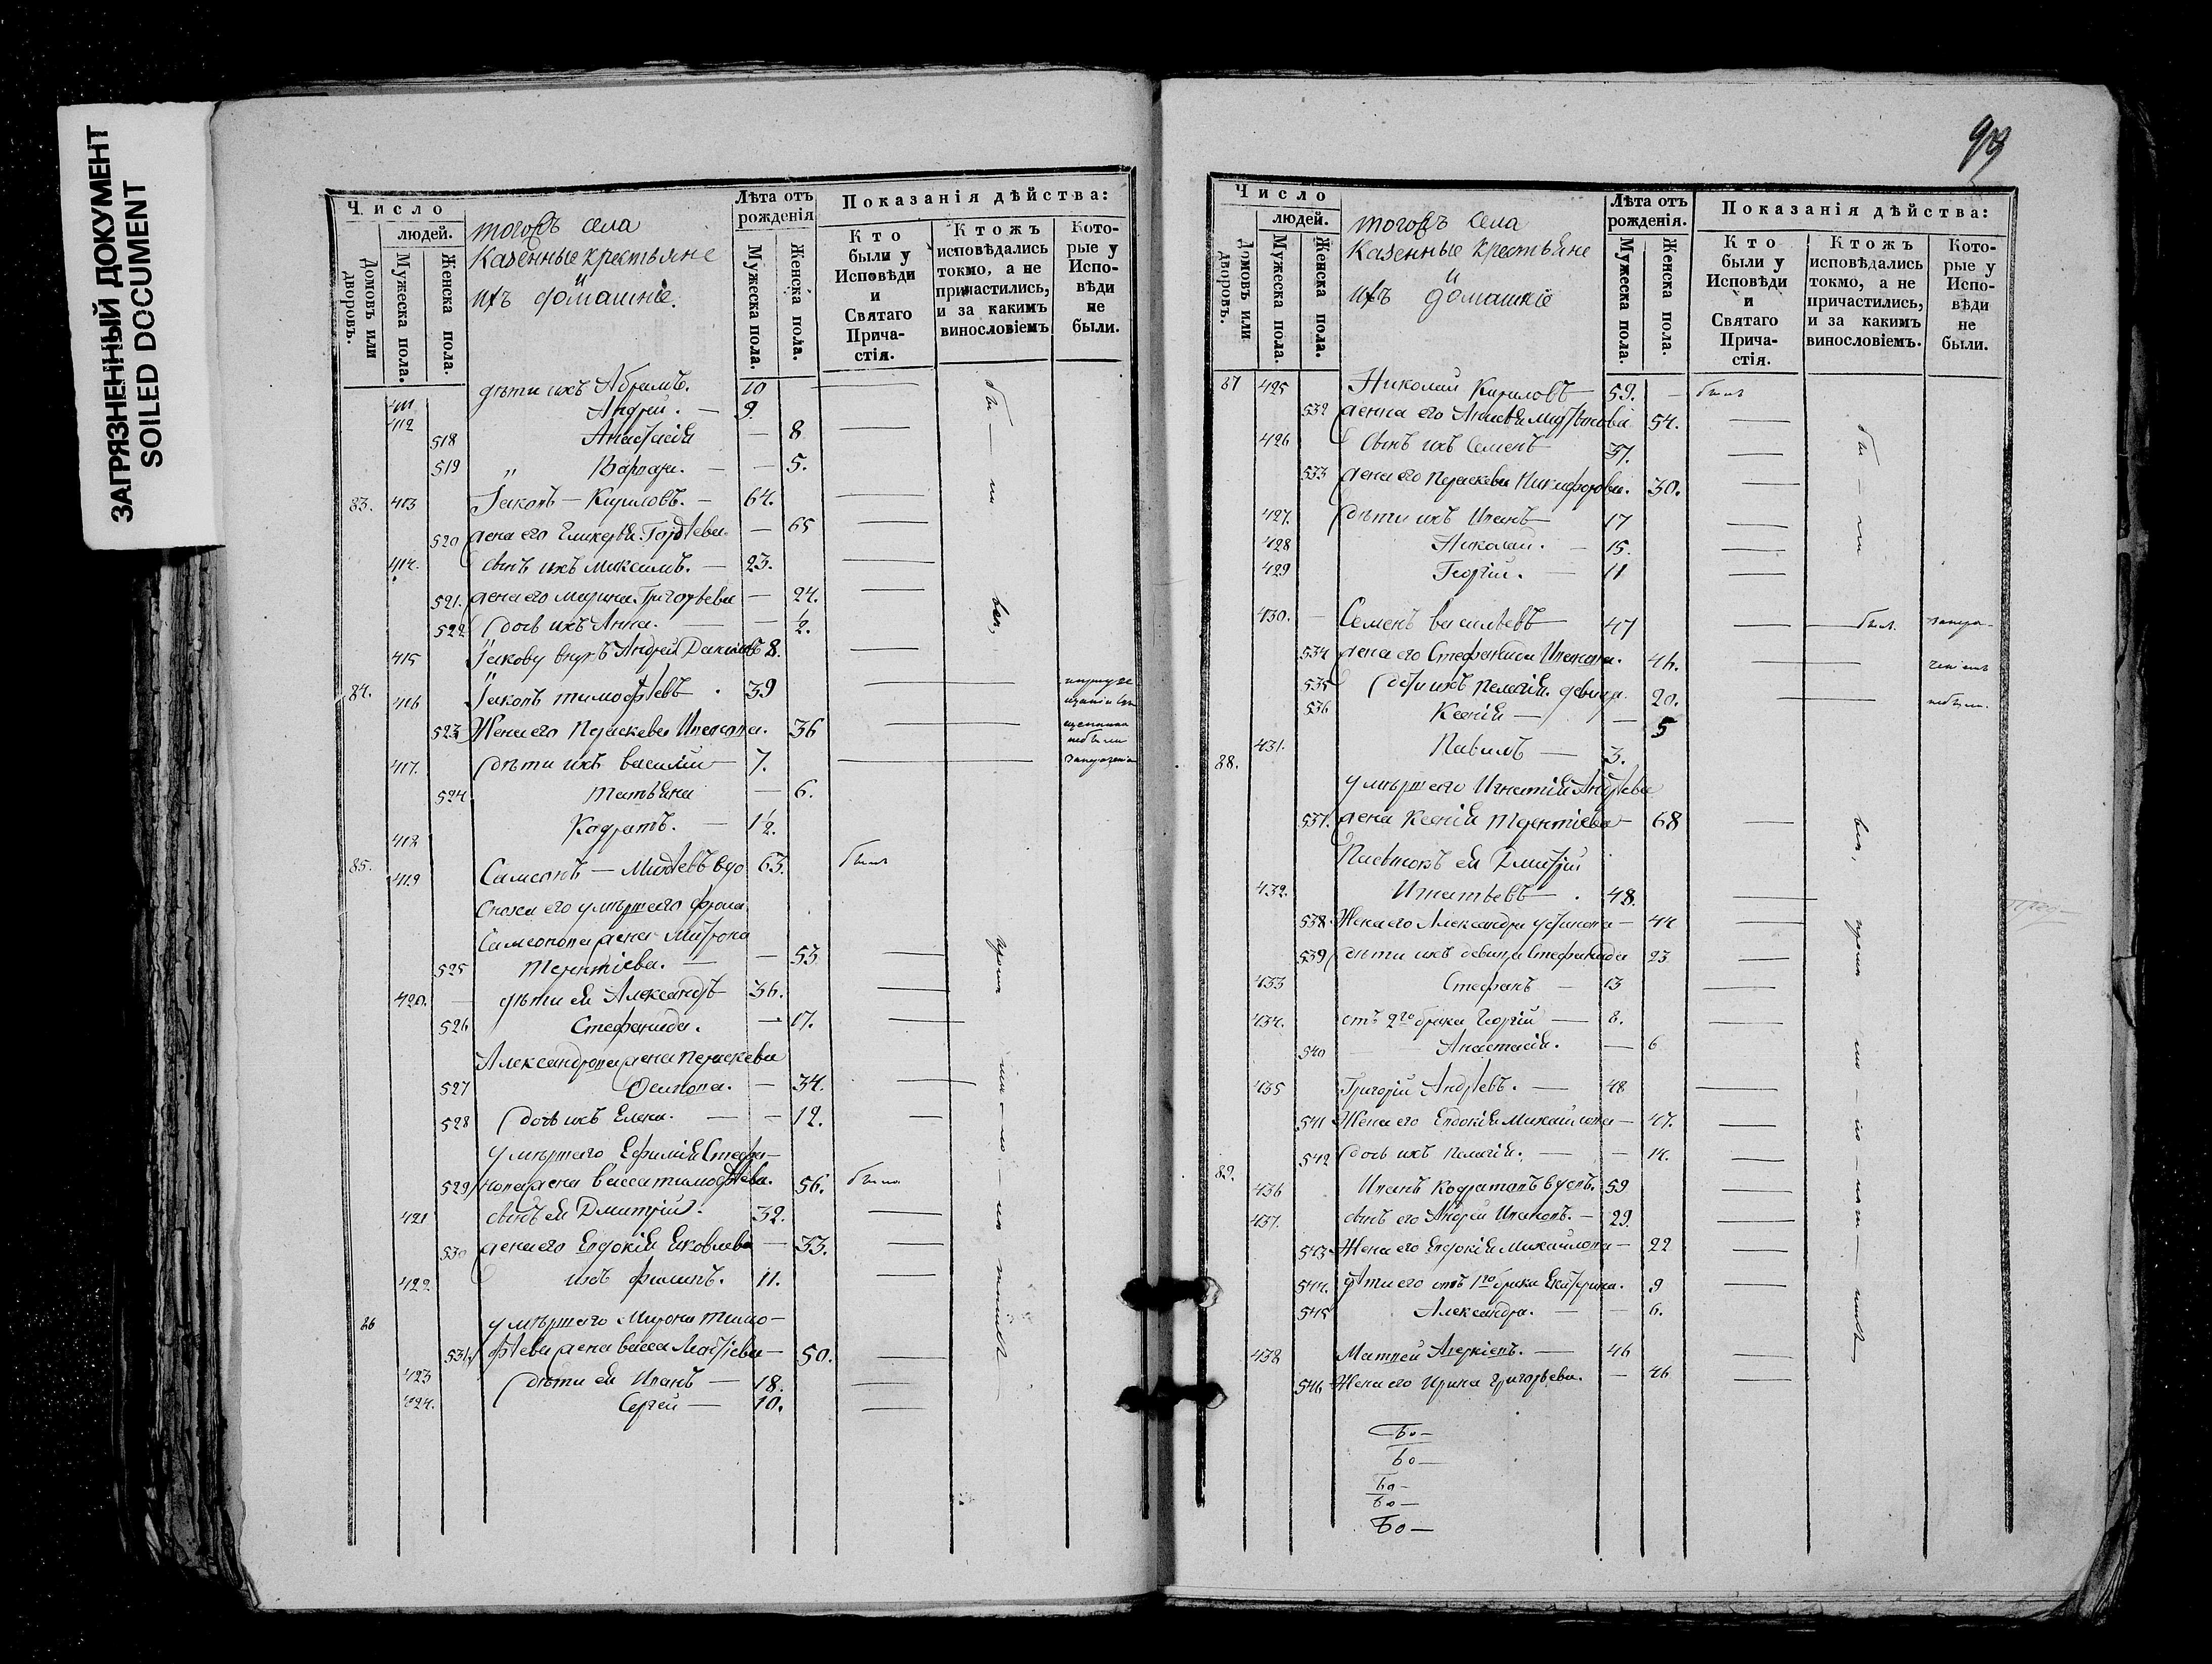 ЗАГРЯЗНЕННЫЙ ДОКУМЕНТ
SOILED DOCUMENT
Число
людей.
Домовъ или дворовъ.
Мужеска пола.
Женска пола.
тогожъ села
Казенные крестьяне
и
ихъ домашніе.
Лѣта отъ рожденія
Мужеска пола.
Женска пола.
Показанія дѣйства:
Кто были у Исповѣди и Святаго Прича-стія.
Ктожъ исповѣдались токмо, а не причастились, и за какимъ винословіемъ
Кото-рые у Испо-вѣди не были.
411 дѣти ихъ Абрамъ. 10
412 Андрей. — 9.
518 Анастасія — 8
519 " Варвара. — — 5.
83. 413 Іаковъ — Кириловъ. — 64.
520 жена его Гликерія Гордѣева — 65
414. сынъ ихъ Максимъ. — 23.
521. жена его Марина Григорьева — 24.
522 дочь ихъ Анна. — — ½.
415 Іакову внукъ Андрей 8.
84. 416 Іаковъ тимофѣевъ . 39
523 Жена его Параскева Иванова. 36
417. дѣти ихъ василій — 7.
524 татьяна — 6.
418 Кодратъ. — 1½.
85. 419 Самсонъ — вдо 63. былъ
Сноха его умершаго фрола
Самсонова жена Матрона
525 Терентіева. — — 53
420. — дѣти ея Александръ 36.
526 Стефанида. — 17.
Александрова жена Параскева
527 Осипова. — 34.
528 дочь ихъ Елена. — — 12.
умершаго Ефимія Стефа—
529 нова жена васса тимофѣева. 56. была
421 сынъ ея Дмитрій. 32.
530 жена его Евдокія Яковлева — 33.
422 ихъ филипъ. 11.
86 умершаго Мирона тимо—
531. фѣева жена васса — 50.
423 дѣти ея Иванъ — 18.
424. Сергей — 10.
Число
людей.
Домовъ или дворовъ.
Мужеска пола.
Женска пола.
тогожъ села
Казенные крестьяне
и
ихъ домашніе
Лѣта отъ рожденія.
Мужеска пола.
Женска пола.
Показанія дѣйства:
Кто были у Исповѣди и Святаго Прича-стія.
Ктожъ исповѣдались токмо, а не причастились, и за какимъ винословіемъ.
Кото-рые у Испо-вѣди не были.
87 425 Николай Кириловъ 59. — былъ
532 жена его 54.
426 сынъ ихъ Семенъ 37.
533 жена его Параскева Никифорова. 30.
427. дѣти ихъ Иванъ — 17
428 Николай. — 15.
429 Георгій. — 11
430. — Семенъ васильевъ — 47
534 жена его Стефанида Иванова. 46.
535 дѣти ихъ Пелагія девица. 20.
536 Ксенія — — 5
431. Павелъ — 3.
88. умершаго Игнатія Андрѣева
537. жена Ксенія Терентіева — 68
Пасынокъ ея Дмитрій
432. Игнатьевъ — . 48.
538 Жена его Александра Устинова — 44
539 дѣти ихъ девица Стефанида 23
433 Стефанъ — 13
434. отъ 2го брака Георгій — 8.
540 Анастасія. — 6
435 Григорій Андрѣевъ. — 48
541 Жена его Евдокія Михайлова — 47.
542 дочь ихъ Пелагія. — — 14.
89. 436 Иванъ Кодратовъ вдовъ. 59
437. сынъ его Андрей Ивановъ. — 29.
543 Жена его Евдокія Михайлова — 22
544. дѣти его отъ 1го брака Екатерина. 9
545 Александра. — — 6.
438 Матвей Аверкіевъ. — 46
546 Жена его Ирина Григорьева. — 46